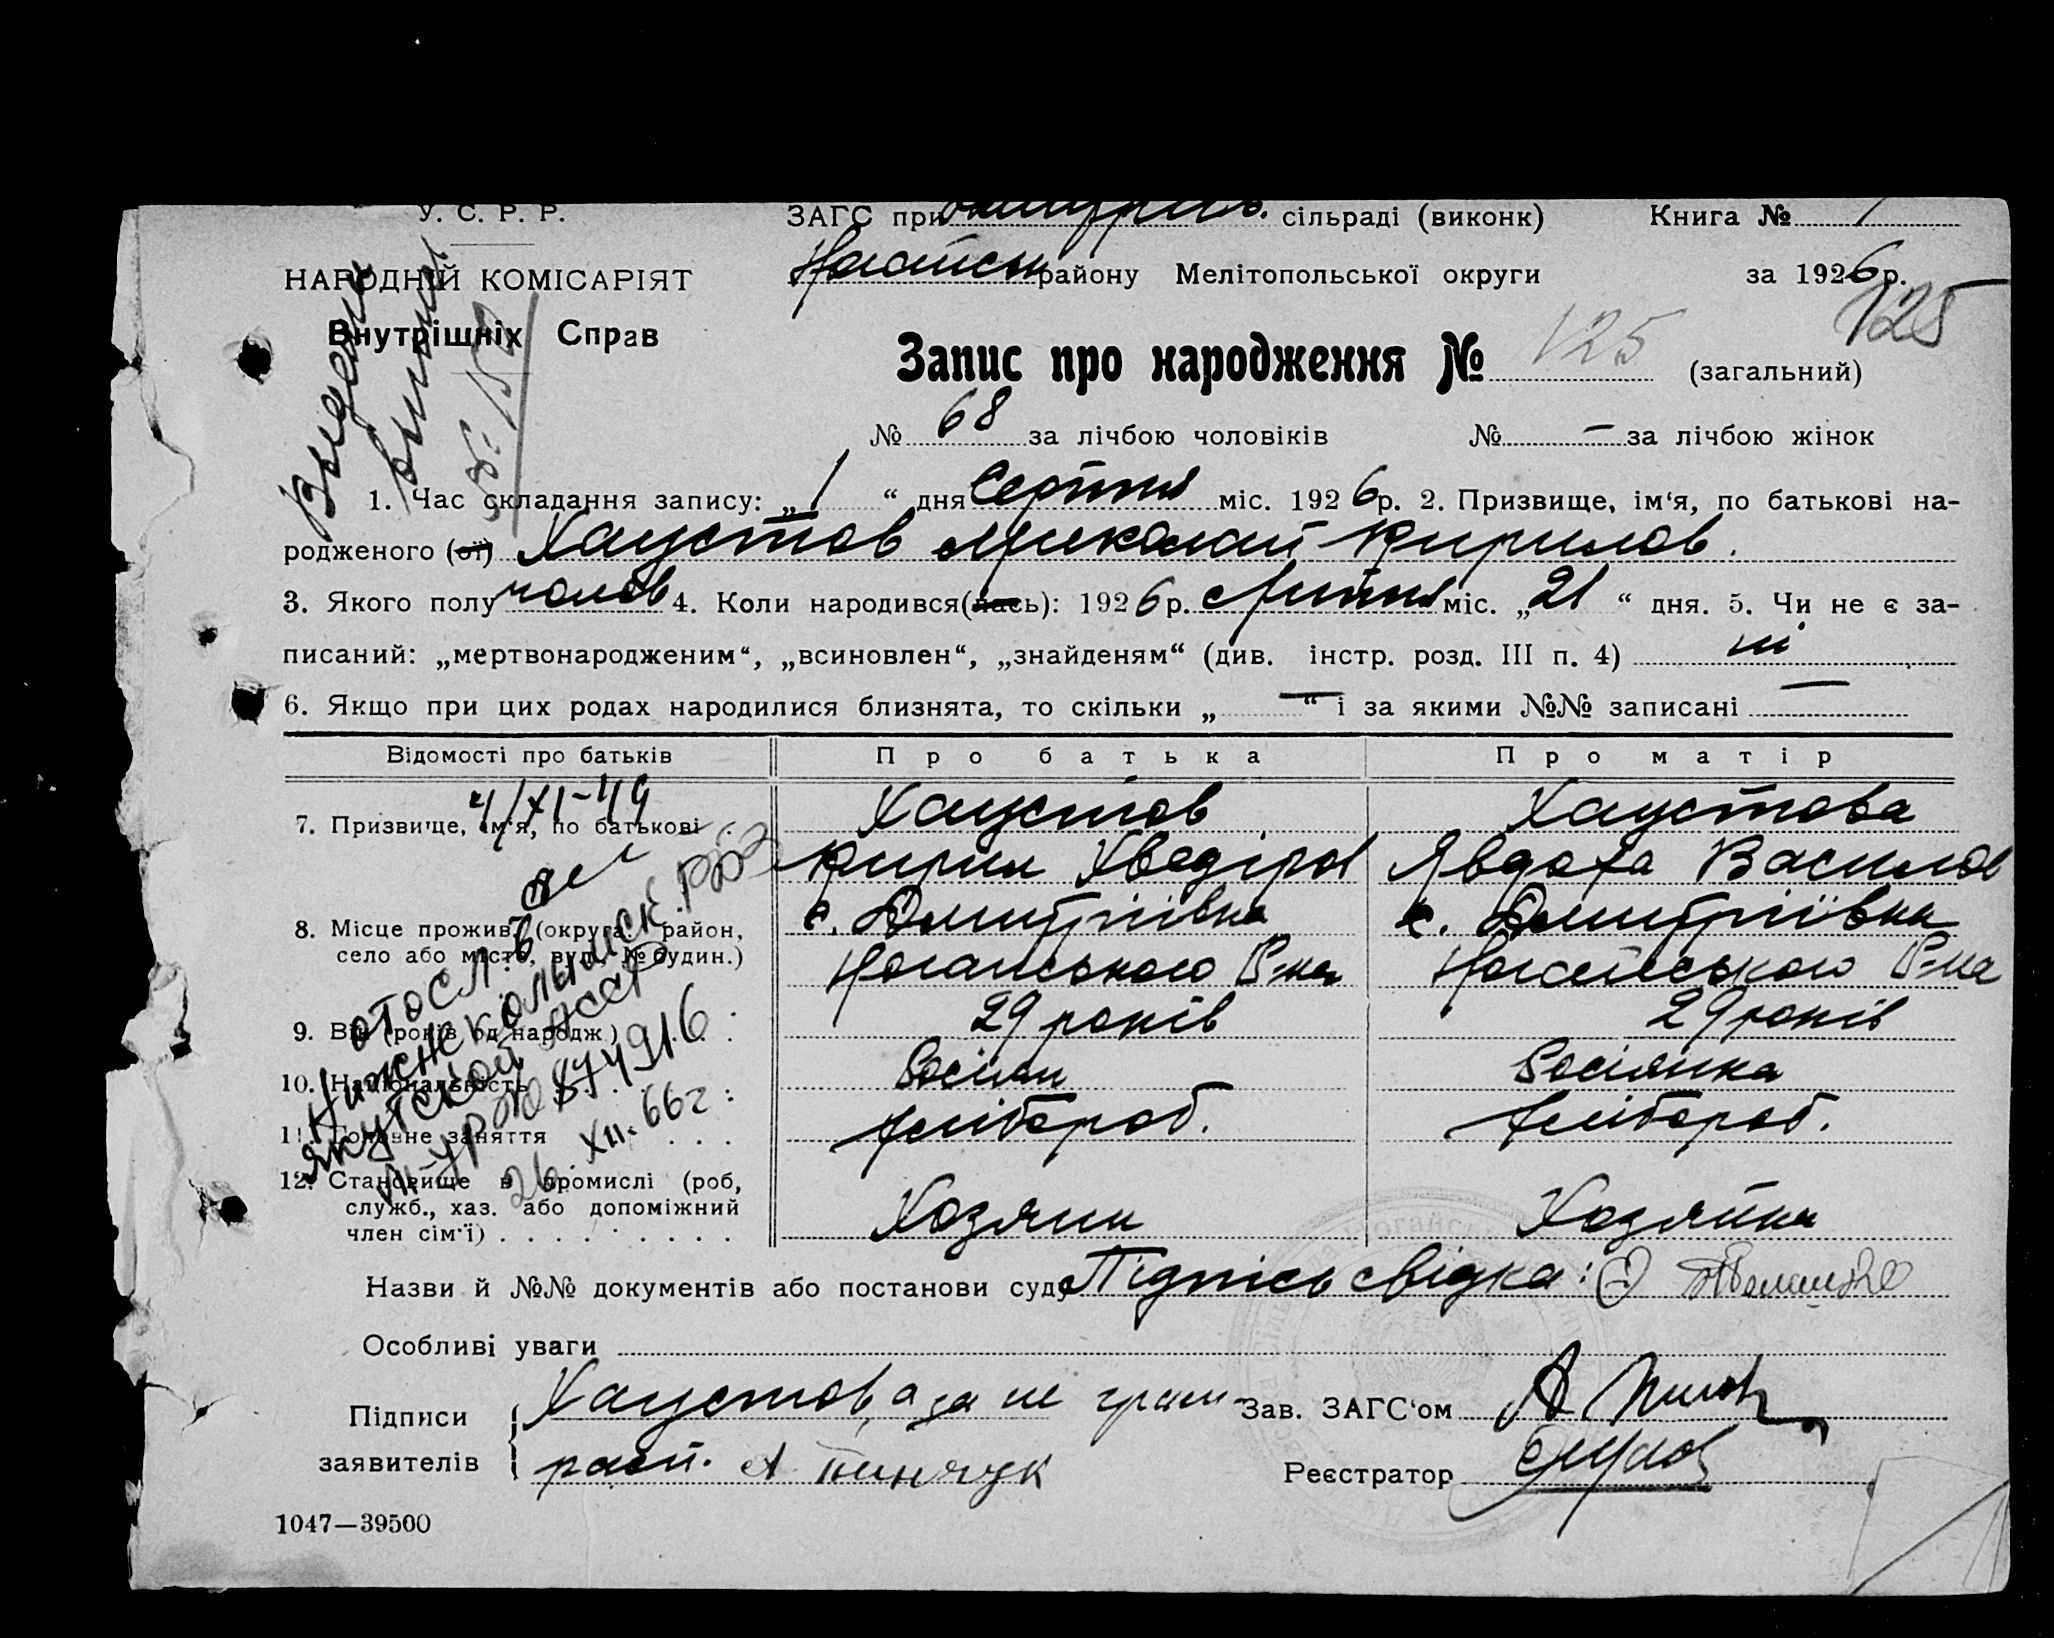 У. С. Р. Р.
НАРОДНІЙ КОМІСАРІЯТ
Внутрішніх Справ
ЗАГС при сільраді (виконк) Книга № 1
району Мелітопольської округи за 1926 р.
125
Запис про народження № 125 (загальний)
№ 68 за лічбою чоловіків № — за лічбою жінок
1. Час складання запису: „1“ дня Серпня міс. 1926 р. 2. Призвище, ім'я, по батькові на-
родженого (ої) Хаустов Миколай Кирилов.
3. Якого полу чолов 4. Коли народився(лась): 1926 р. Липня міс. „21“ дня. 5. Чи не є за-
писаний: „мертвонародженим“, „всиновлен“, „знайденям“ (див. інстр. розд. III п. 4) ні
6. Якщо при цих родах народилися близнята, то скільки „—“ і за якими №№ записані —
Відомості про батьків Про батька Про матір
7. Призвище, ім'я, по батькові Хаустов Хаустова
Кирил Хведіров Явдоха Василов
8. Місце прожив. (округа, район, с. Дмитріївка с. Дмитріївка
село або місто, вул., № будин.) Ногайського Р-на Ногайського Р-на
9. Вік (років од народж.) 29 років 29 років
10. Національність Росіян Росіянка
11. Головне заняття хлібороб. хлібороб.
12. Становище в промислі (роб,
служб., хаз. або допоміжний
член сім'ї) Хозяин Хозяйка
Назви й №№ документів або постанови суду Підпісь свідка:
Особливі уваги
Підписи Хаустов, а за не грам- Зав. ЗАГС'ом
заявителів расп. Реєстратор
1047—39500
4/XI-49
отосл. в
Нижнеколымск. РБЗ
Якутской АССР
26. XII. 66 г.